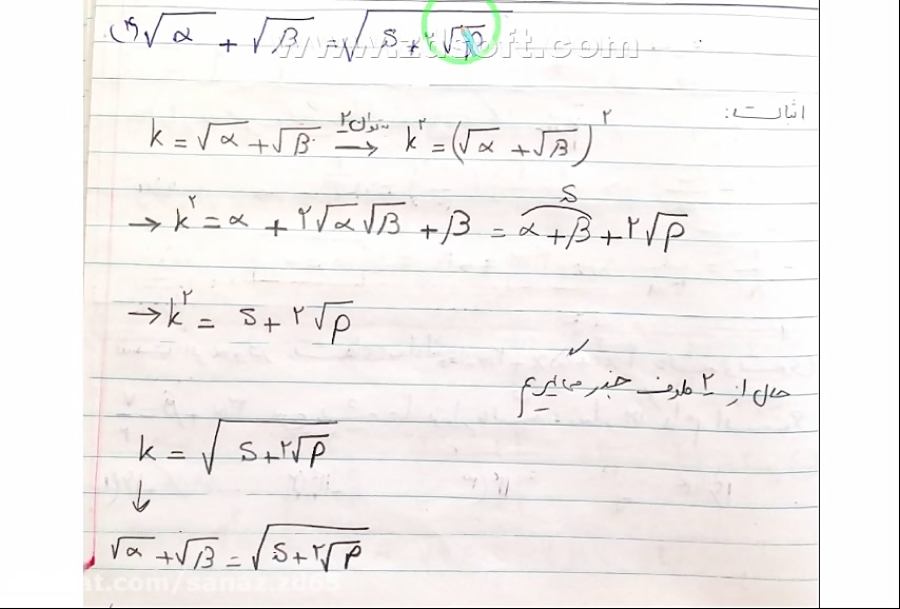 √α + √β = √(S + ۲√P)
www.zdsoft.com
اثبات:
k = √α + √β →بتوان ۲ k^۲ = (√α + √β)^۲
→ k^۲ = α + ۲√α√β + β = α + β + ۲√P
S
→ k^۲ = S + ۲√P
حال از ۲ طرف جذر می‌گیریم ✓
k = √(S + ۲√P)
↓
√α + √β = √(S + ۲√P)